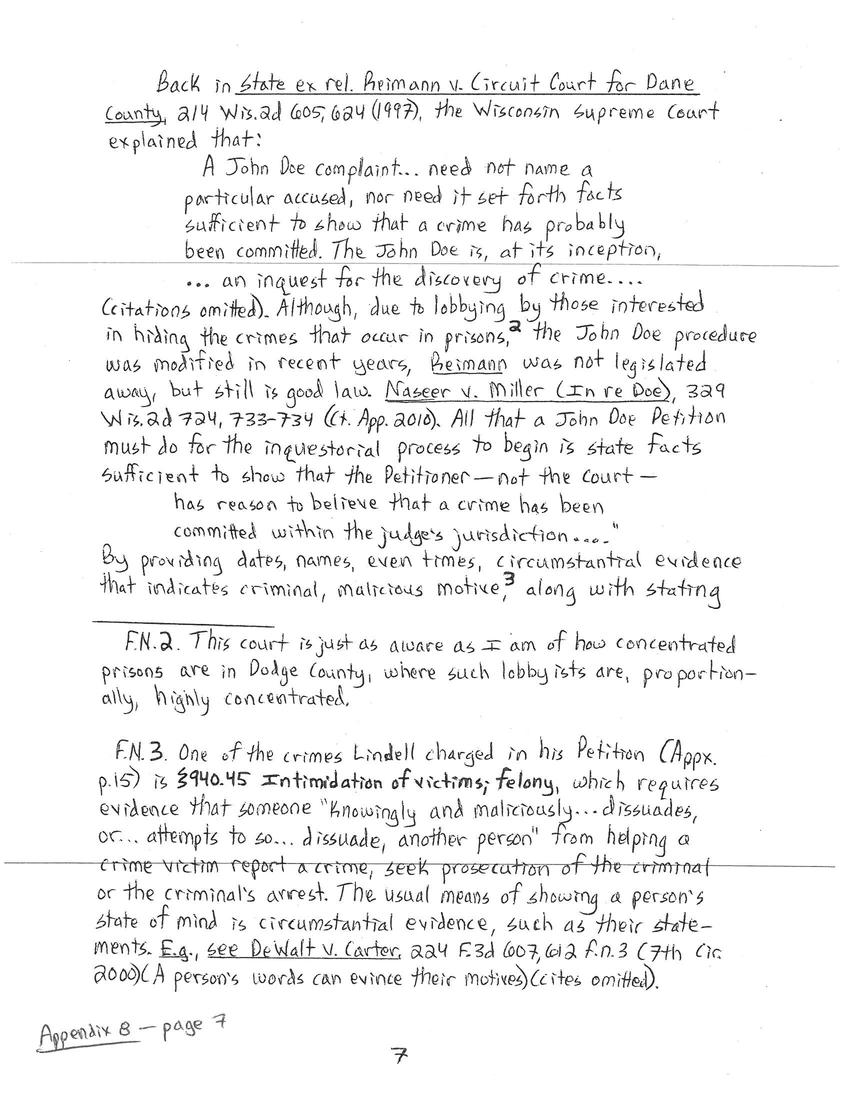 Back in State ex rel. Reimann v. Circuit Court for Dane
County, 214 Wis.2d 605, 624 (1997), the Wisconsin Supreme Court
explained that:
A John Doe complaint... need not name a
particular accused, nor need it set forth facts
sufficient to show that a crime has probably
been committed. The John Doe is, at its inception,
... an inquest for the discovery of crime....
(citations omitted). Although, due to lobbying by those interested
in hiding the crimes that occur in prisons,² the John Doe procedure
was modified in recent years, Reimann was not legislated
away, but still is good law. Naseer v. Miller (In re Doe), 329
Wis.2d 724, 733-734 (Ct. App. 2010). All that a John Doe Petition
must do for the inquestorial process to begin is state facts
sufficient to show that the Petitioner—not the court—
has reason to believe that a crime has been
committed within the judge's jurisdiction...."
By providing dates, names, even times, circumstantial evidence
that indicates criminal, malicious motive,³ along with stating
F.N.2. This court is just as aware as I am of how concentrated
prisons are in Dodge County, where such lobbyists are, proportion-
ally, highly concentrated.
F.N.3. One of the crimes Lindell charged in his Petition (Appx.
p.15) is §940.45 Intimidation of victims; felony, which requires
evidence that someone "knowingly and maliciously... dissuades,
or... attempts to so... dissuade, another person" from helping a
crime victim report a crime, seek prosecution of the criminal
or the criminal's arrest. The usual means of showing a person's
state of mind is circumstantial evidence, such as their state-
ments. E.g., see DeWalt v. Carter, 224 F.3d 607, 612 f.n.3 (7th Cir.
2000)(A person's words can evince their motives)(cites omitted).
Appendix B — page 7
7